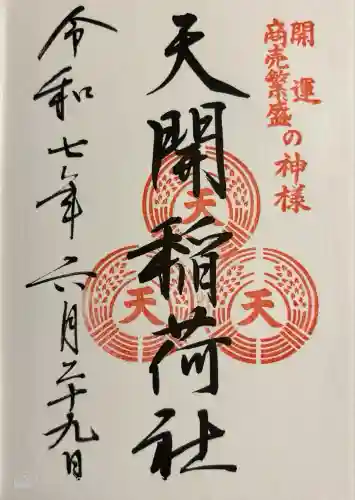 開運
商売繁盛の神様
天開稲荷社
天
天
天
令和七年六月二十九日